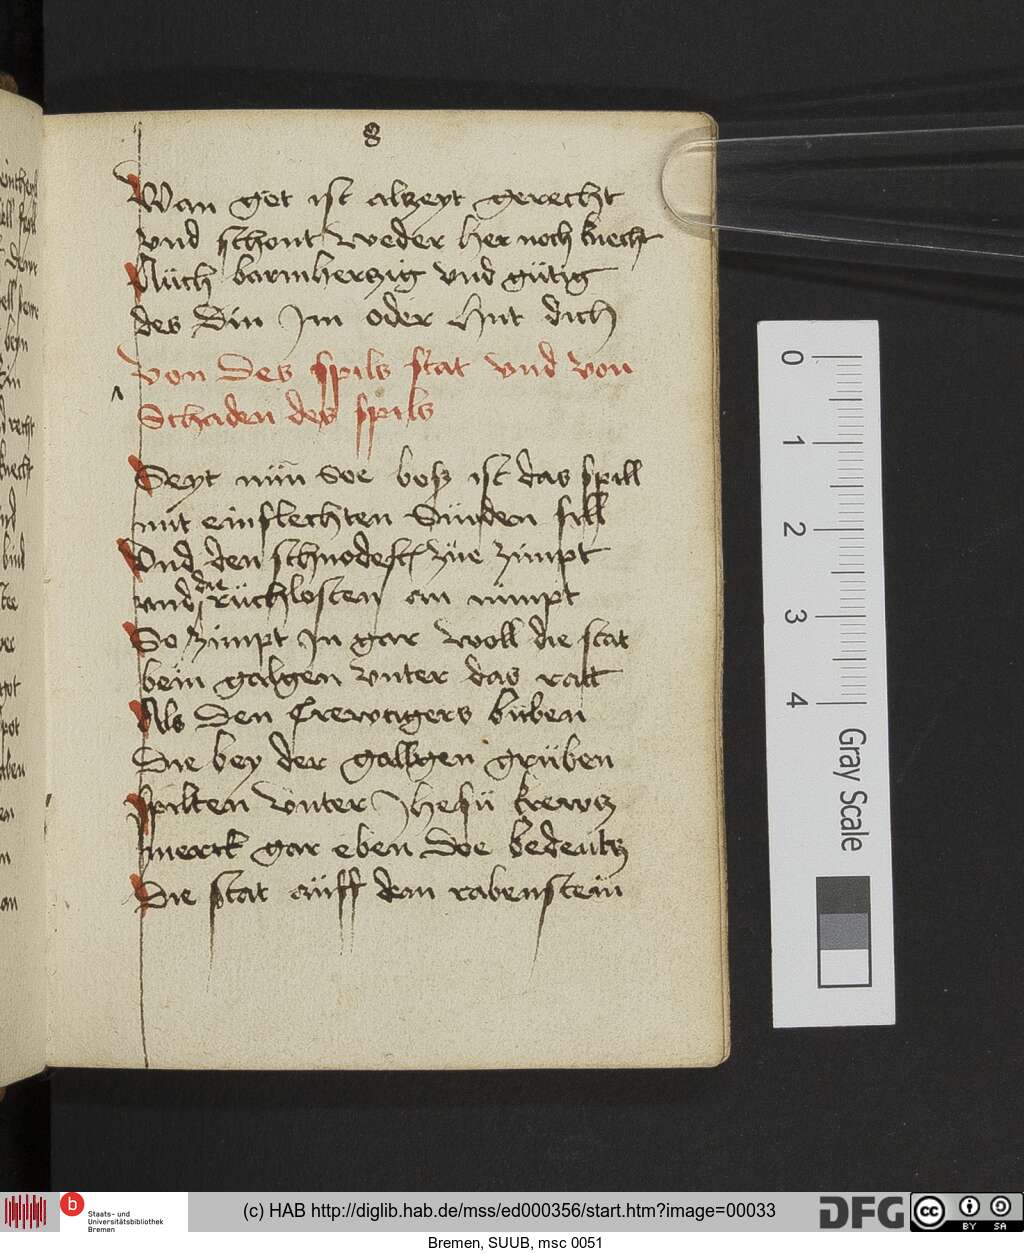 8
Wan got ist alzeyt gerecht
vnd schont weder her noch knecht
Auch barmherzig vnd gütig
des Bin Jm oder hut dich
von des spils stat vnd von
Schaden des spils
Seyt nün soe boss ist das spill
mit einflechten Sünden fill
Vnd den schnodesten züe zimpt
vnd die rüchlosten an nimpt
So zimpt Jn gar woll die stat
beim galgen vnter das ratt
Als den Crewtzigers büben
Die bey der gallgen grüben
spilten vnter Jhesü krewtz
merck gar eben Soe bedeutz
Die stat aüff dem rabenstein
0
1
2
3
4
Gray Scale
b
Staats- und
Universitätsbibliothek
Bremen
(c) HAB http://diglib.hab.de/mss/ed000356/start.htm?image=00033
DFG
cc
BY SA
Bremen, SUUB, msc 0051